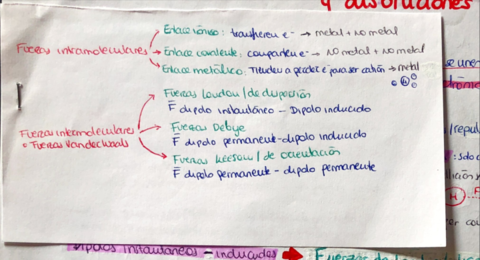 y disoluciones
Fuerzas intramoleculares
Enlace iónico: transfieren e⁻ → metal + no metal
Enlace covalente: comparten e⁻ → NO metal + NO metal
Enlace metálico: Tienden a perder é para ser catión → metal
Fuerzas London / de dispersión
F̅ dipolo instantáneo - Dipolo inducido
Fuerzas intermoleculares
o Fuerzas Vanderwaals
Fuerzas Debye
F̅ dipolo permanente - dipolo inducido
Fuerzas Keesom / de orientación
F̅ dipolo permanente - dipolo permanente
H
Dipolos instantáneos - inducidos → Fuerzas de